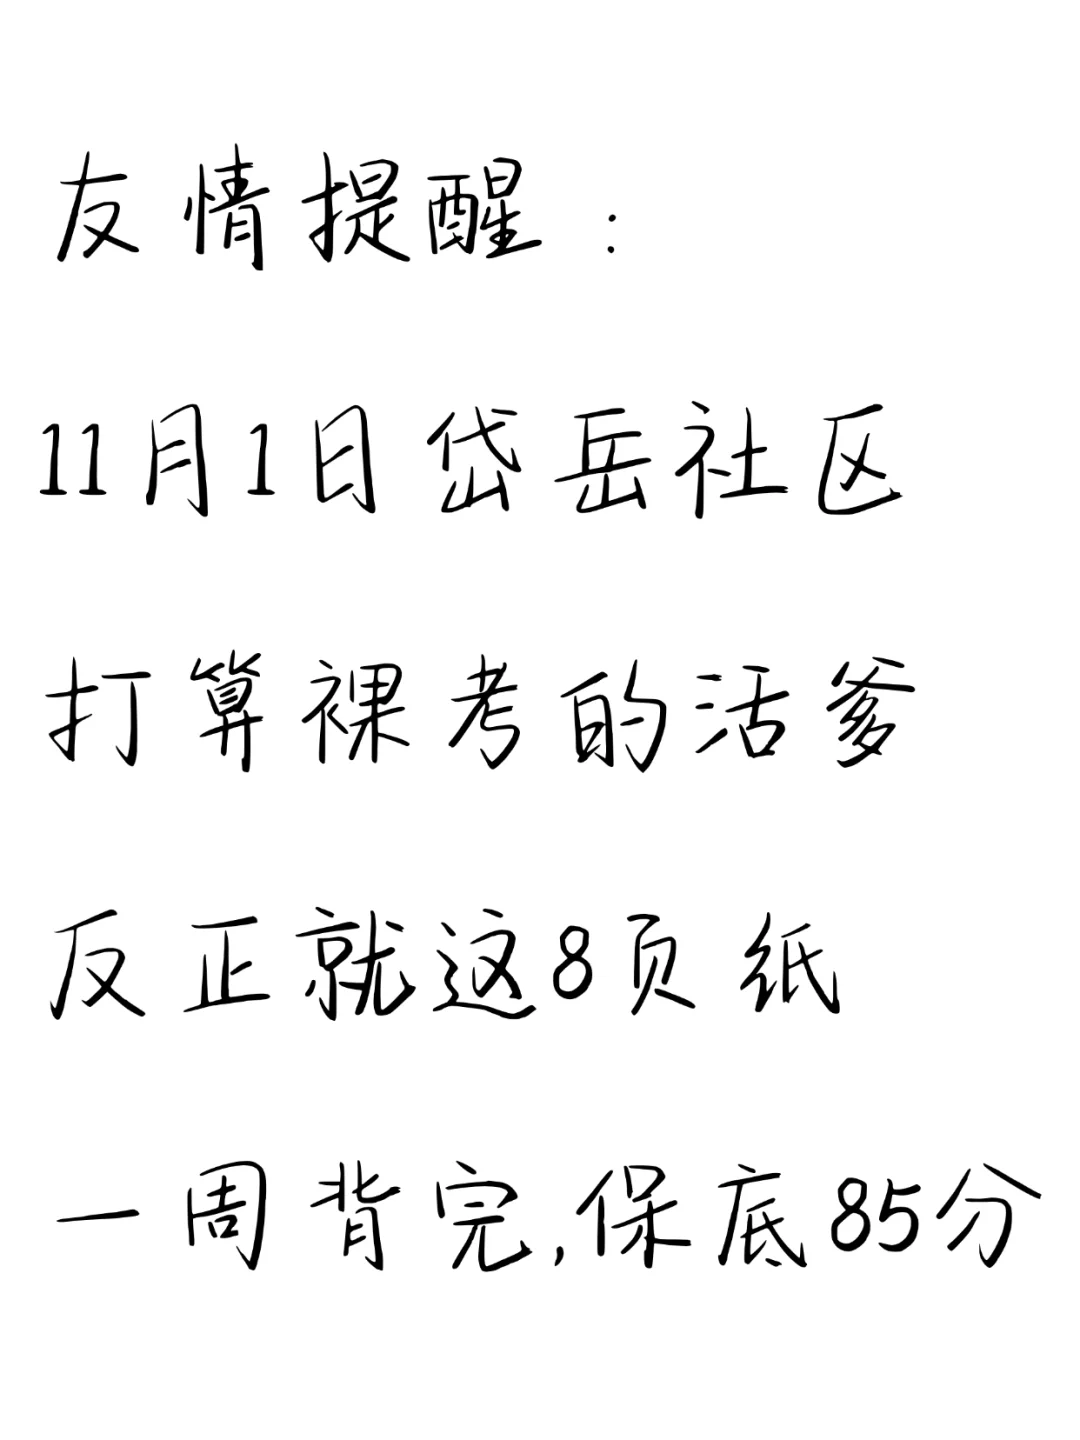 友情提醒：
11月1日岱岳社区
打算裸考的活爹
反正就这8页纸
一周背完,保底85分